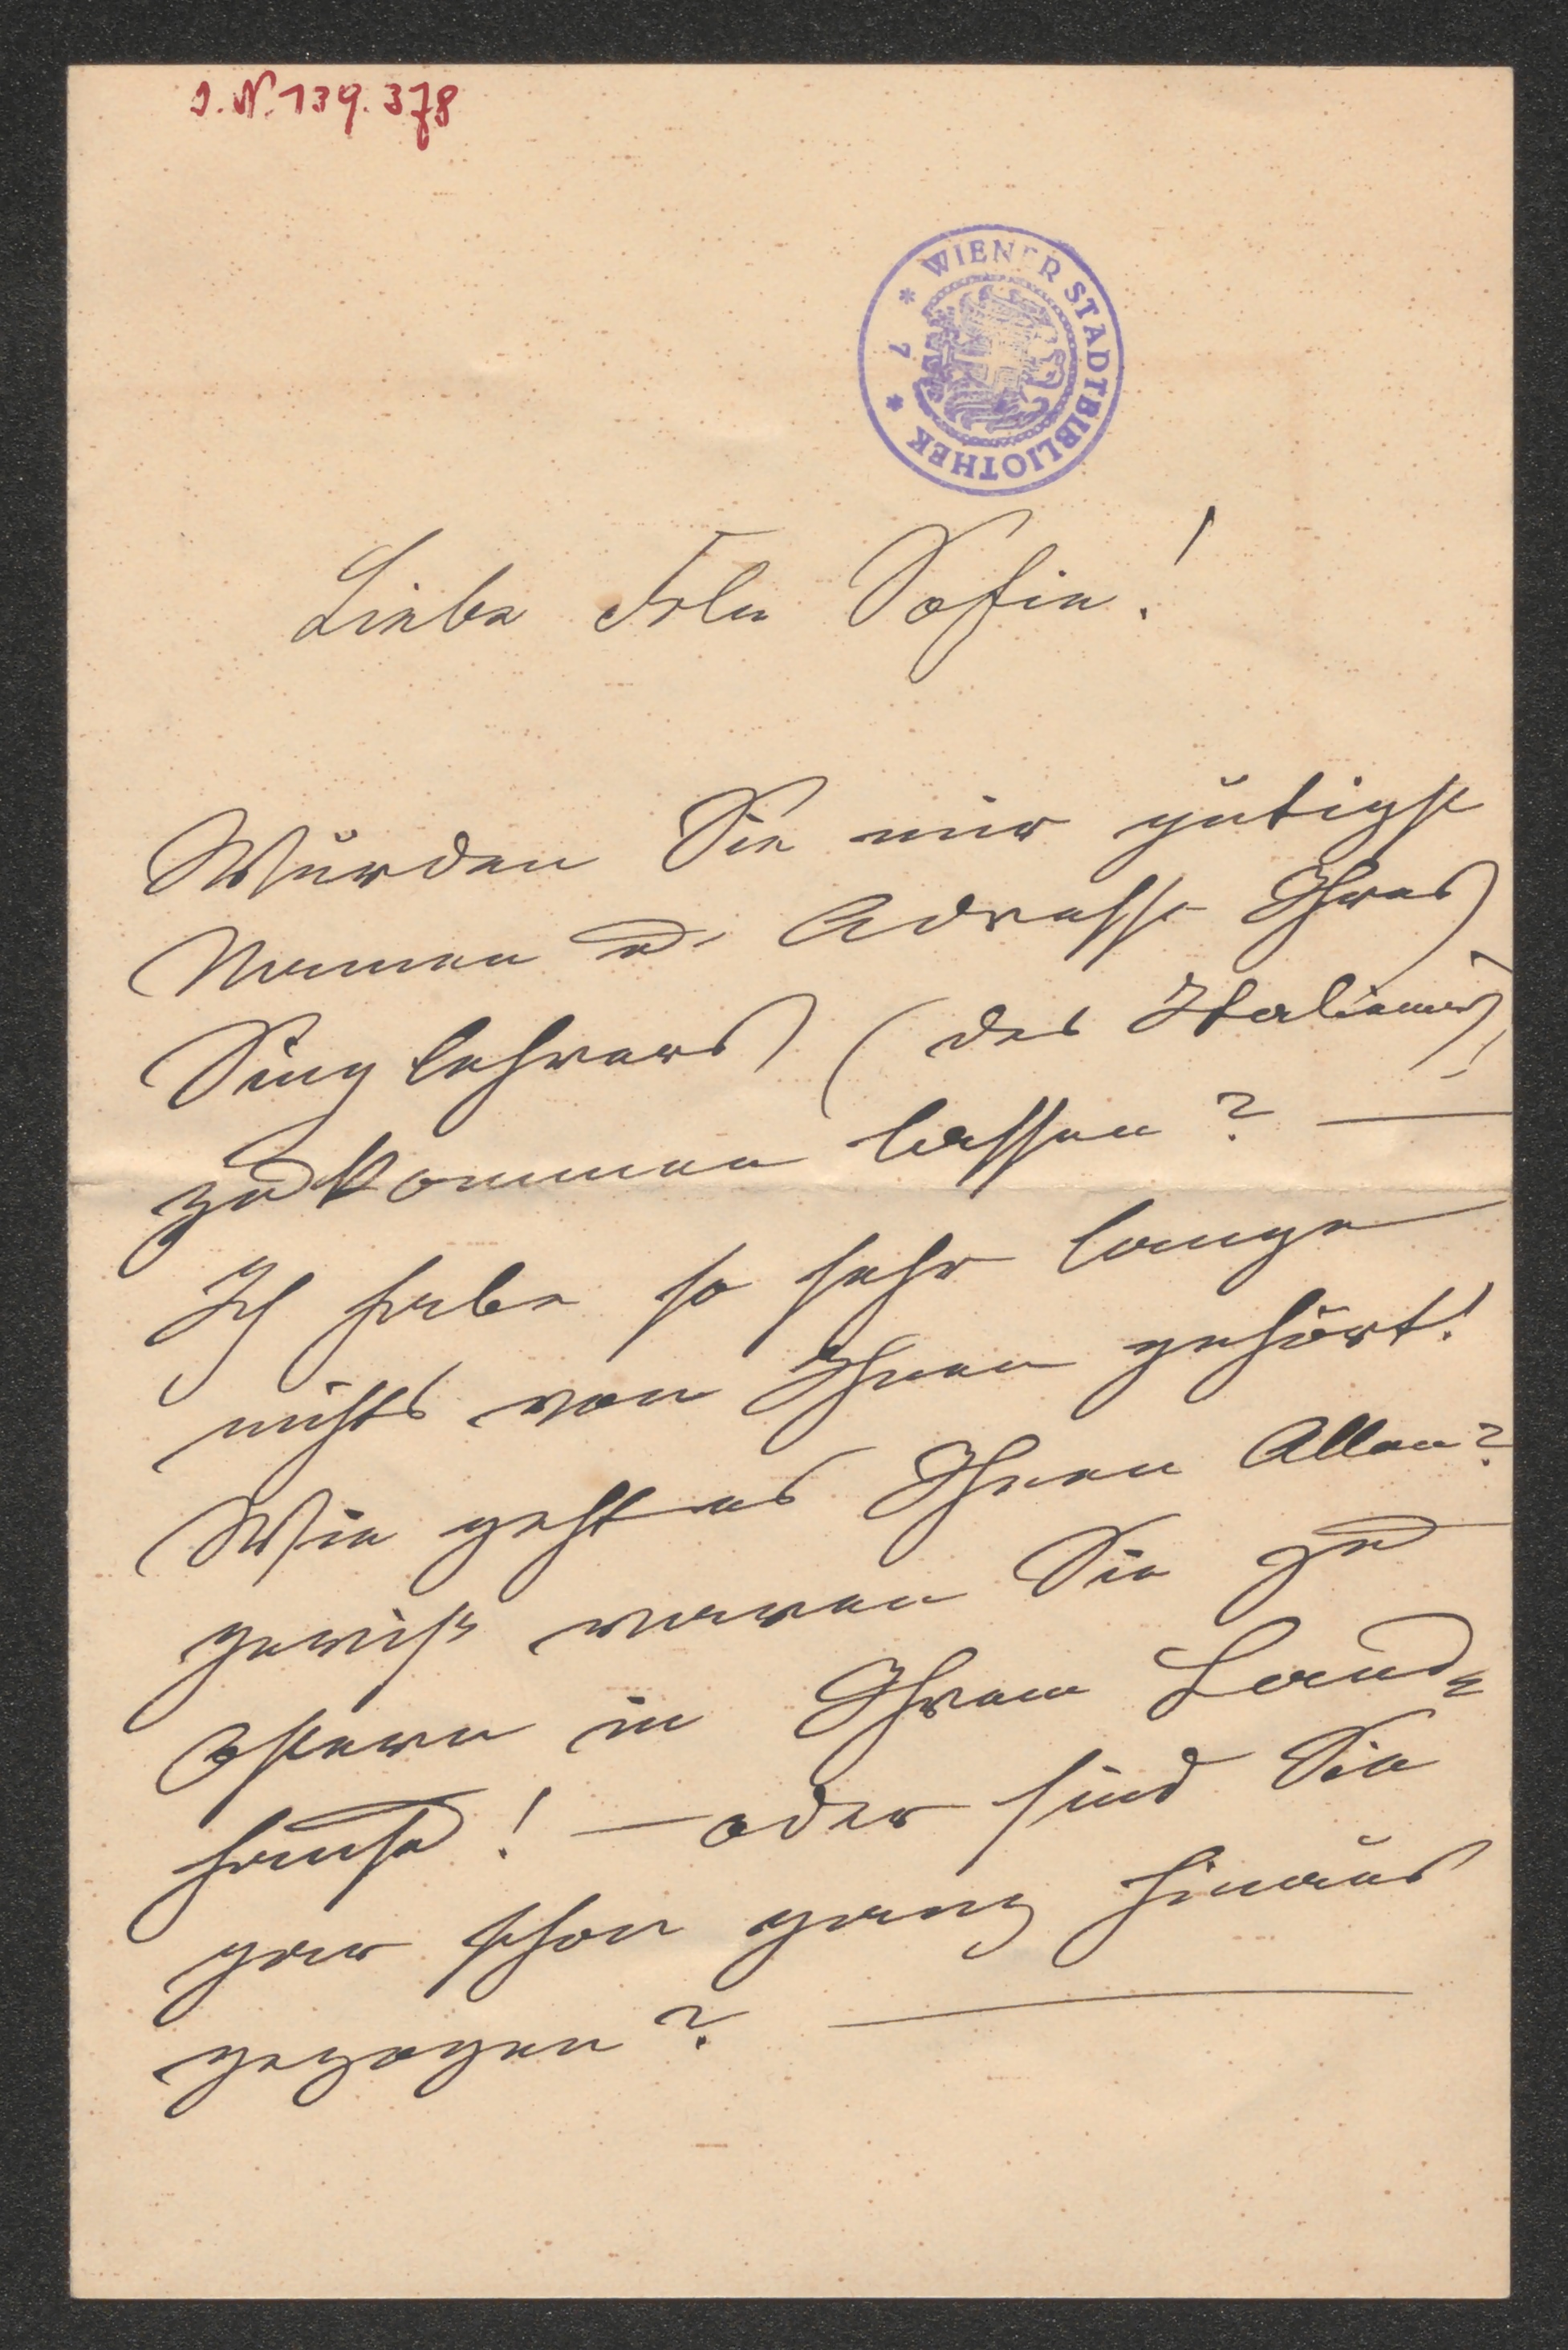 J.N. 139.378
* WIENER STADTBIBLIOTHEK * 7
Liebe Frln Sofie!
Würden Sie mir gütigst
Namen u. Adresse Ihres
Singlehrers (des Italieners)
zukommen lassen? —
Ich habe so sehr lange
nichts von Ihnen gehört!
Wie geht es Ihnen Allen?
gewiß waren Sie zu
Ostern in Ihrem Land-
hause! — oder sind Sie
gar schon ganz hinaus
gezogen? —